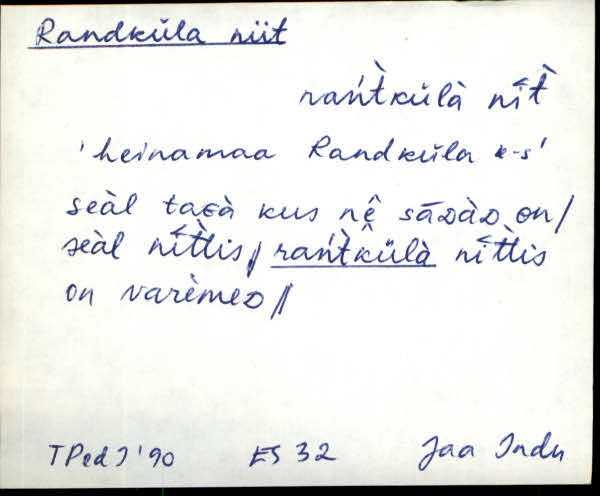 Randküla niit
rań̀t̀külà nît̀
'heinamaa Randküla k-s'
seàl taɢà kus nê sāᴅàᴅ on/
seàl nît̀tis/ rań̀t̀külà nît̀tis
on varèmeᴅ//
TPedI'90 ES 32 Jaa Indu